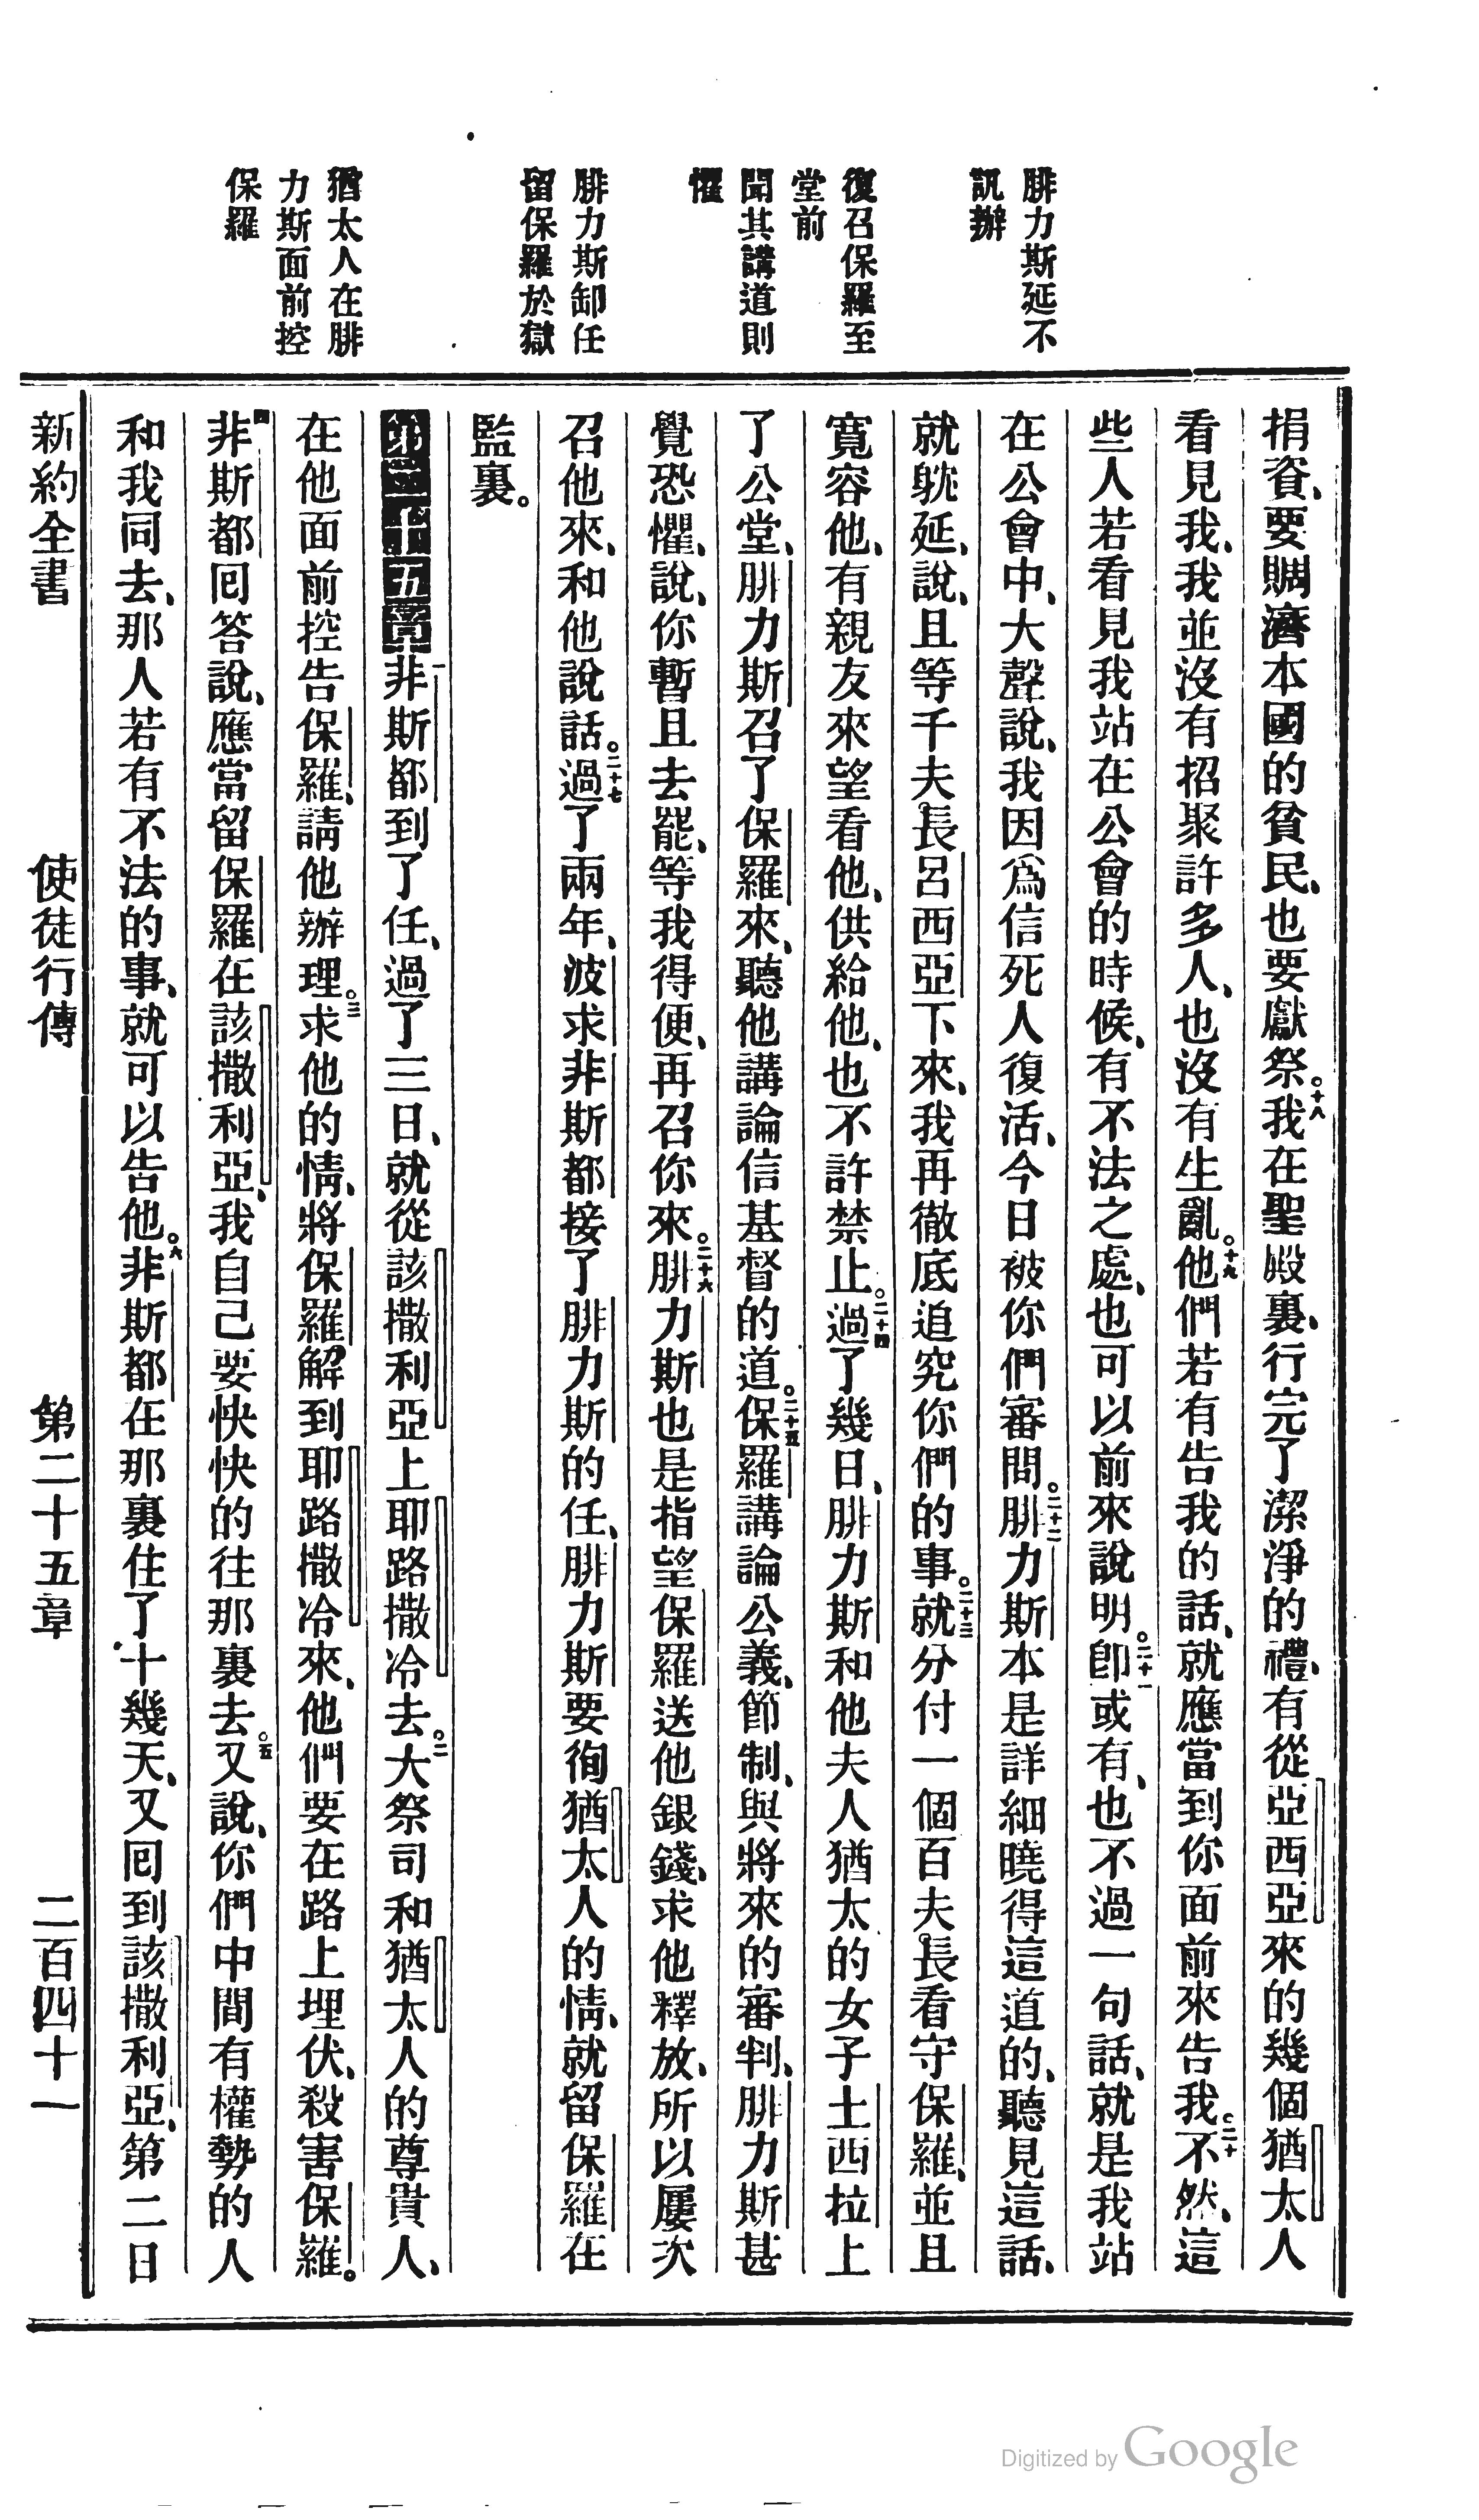 腓力斯延不
訊辦
復召保羅至
堂前
聞其講道則
懼
腓力斯卸任
留保羅於獄
猶太人在腓
力斯面前控
保羅
捐資、要賙濟本國的貧民、也要獻祭。十八我在聖殿裏、行完了潔淨的禮、有從亞西亞來的幾個猶太人
看見我、我並沒有招聚許多人、也沒有生亂。十九他們若有告我的話、就應當到你面前來告我。二十不然、這
些人若看見我站在公會的時候、有不法之處、也可以前來說明。二十一卽或有、也不過一句話、就是我站
在公會中、大聲說、我因爲信死人復活、今日被你們審問。二十二腓力斯本是詳細曉得這道的、聽見這話、
就躭延、說、且等千夫長呂西亞下來、我再徹底追究你們的事。二十三就分付一個百夫長看守保羅、並且
寬容他、有親友來望看他、供給他、也不許禁止。二十四過了幾日、腓力斯和他夫人猶太的女子土西拉上
了公堂、腓力斯召了保羅來、聽他講論信基督的道。二十五保羅講論公義、節制、與將來的審判、腓力斯甚
覺恐懼、說、你暫且去罷、等我得便、再召你來。二十六腓力斯也是指望保羅送他銀錢、求他釋放、所以屢次
召他來、和他說話。二十七過了兩年、波求非斯都接了腓力斯的任、腓力斯要徇猶太人的情、就留保羅在
監裏。
第二十五章一非斯都到了任、過了三日、就從該撒利亞上耶路撒冷去。二大祭司和猶太人的尊貴人、
在他面前控告保羅、請他辦理。三求他的情、將保羅解到耶路撒冷來、他們要在路上埋伏、殺害保羅。
四非斯都囘答說、應當留保羅在該撒利亞、我自己要快快的往那裏去。五又說、你們中間有權勢的人
和我同去、那人若有不法的事、就可以告他。六非斯都在那裏住了十幾天、又囘到該撒利亞、第二日
新約全書 使徒行傳 第二十五章 二百四十一
Digitized by Google